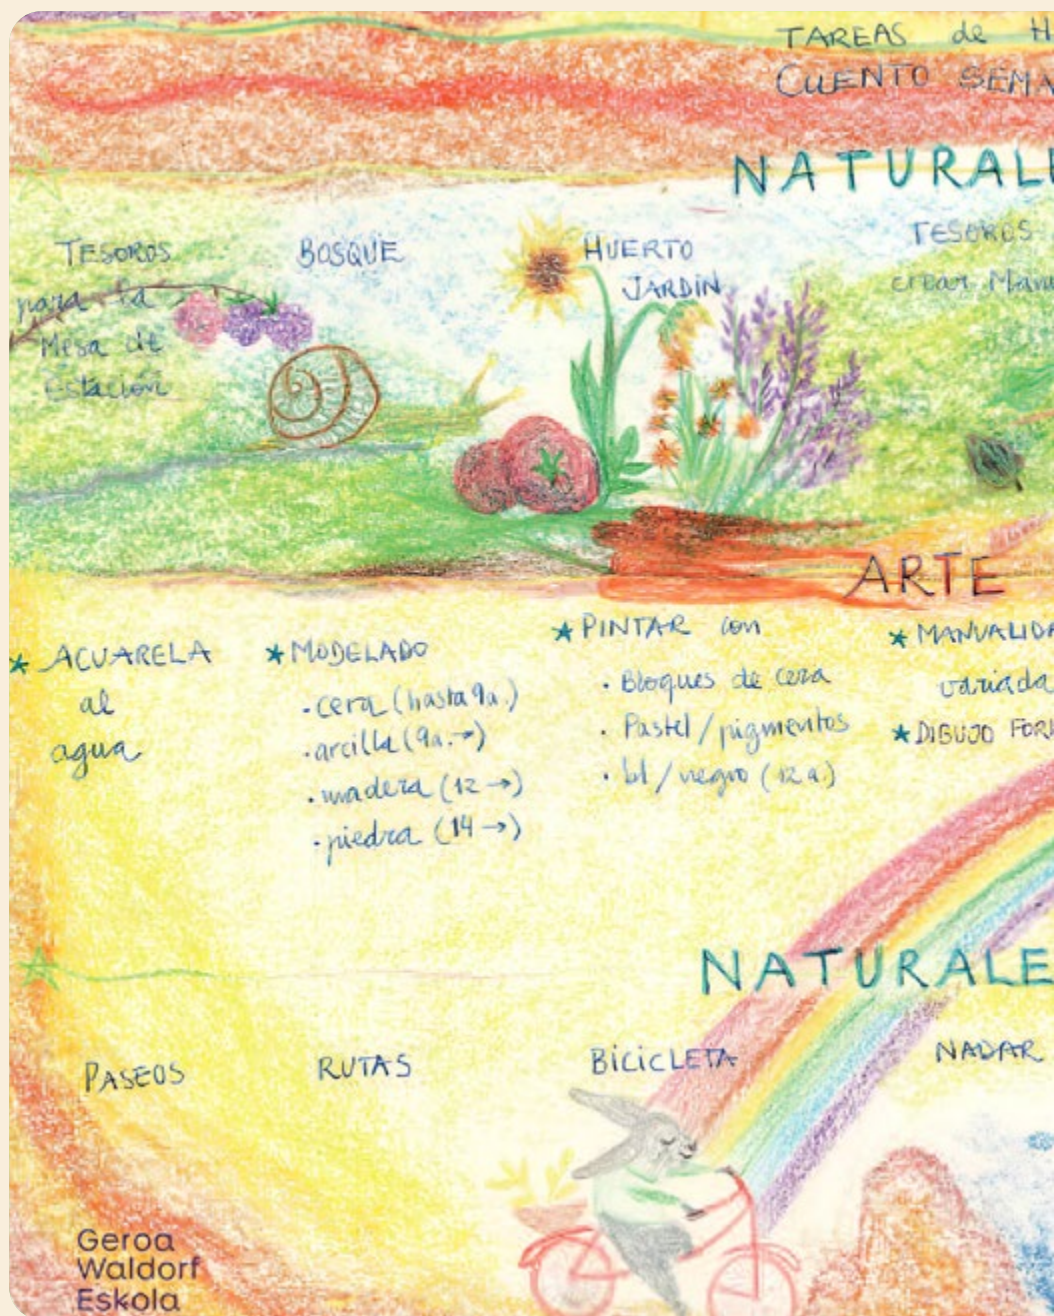 TAREAS de H
CUENTO SEMA
NATURALE
TESOROS
para la
Mesa de
Estación
BOSQUE
HUERTO
JARDÍN
TESOROS
crear Man
ARTE
* ACUARELA
al
agua
* MODELADO
· cera (hasta 9a.)
· arcilla (9a. →)
· madera (12 →)
· piedra (14 →)
* PINTAR con
· Bloques de cera
· Pastel / pigmentos
· bl / negro (12 a.)
* MANUALIDA
variada
* DIBUJO FOR
NATURALE
PASEOS
RUTAS
BICICLETA
NADAR
Geroa
Waldorf
Eskola